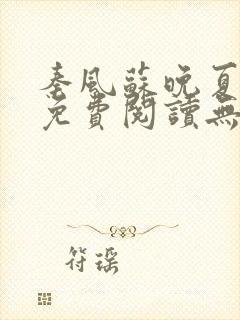 秦風蘇晚夏
免費閱讀無
符瑶